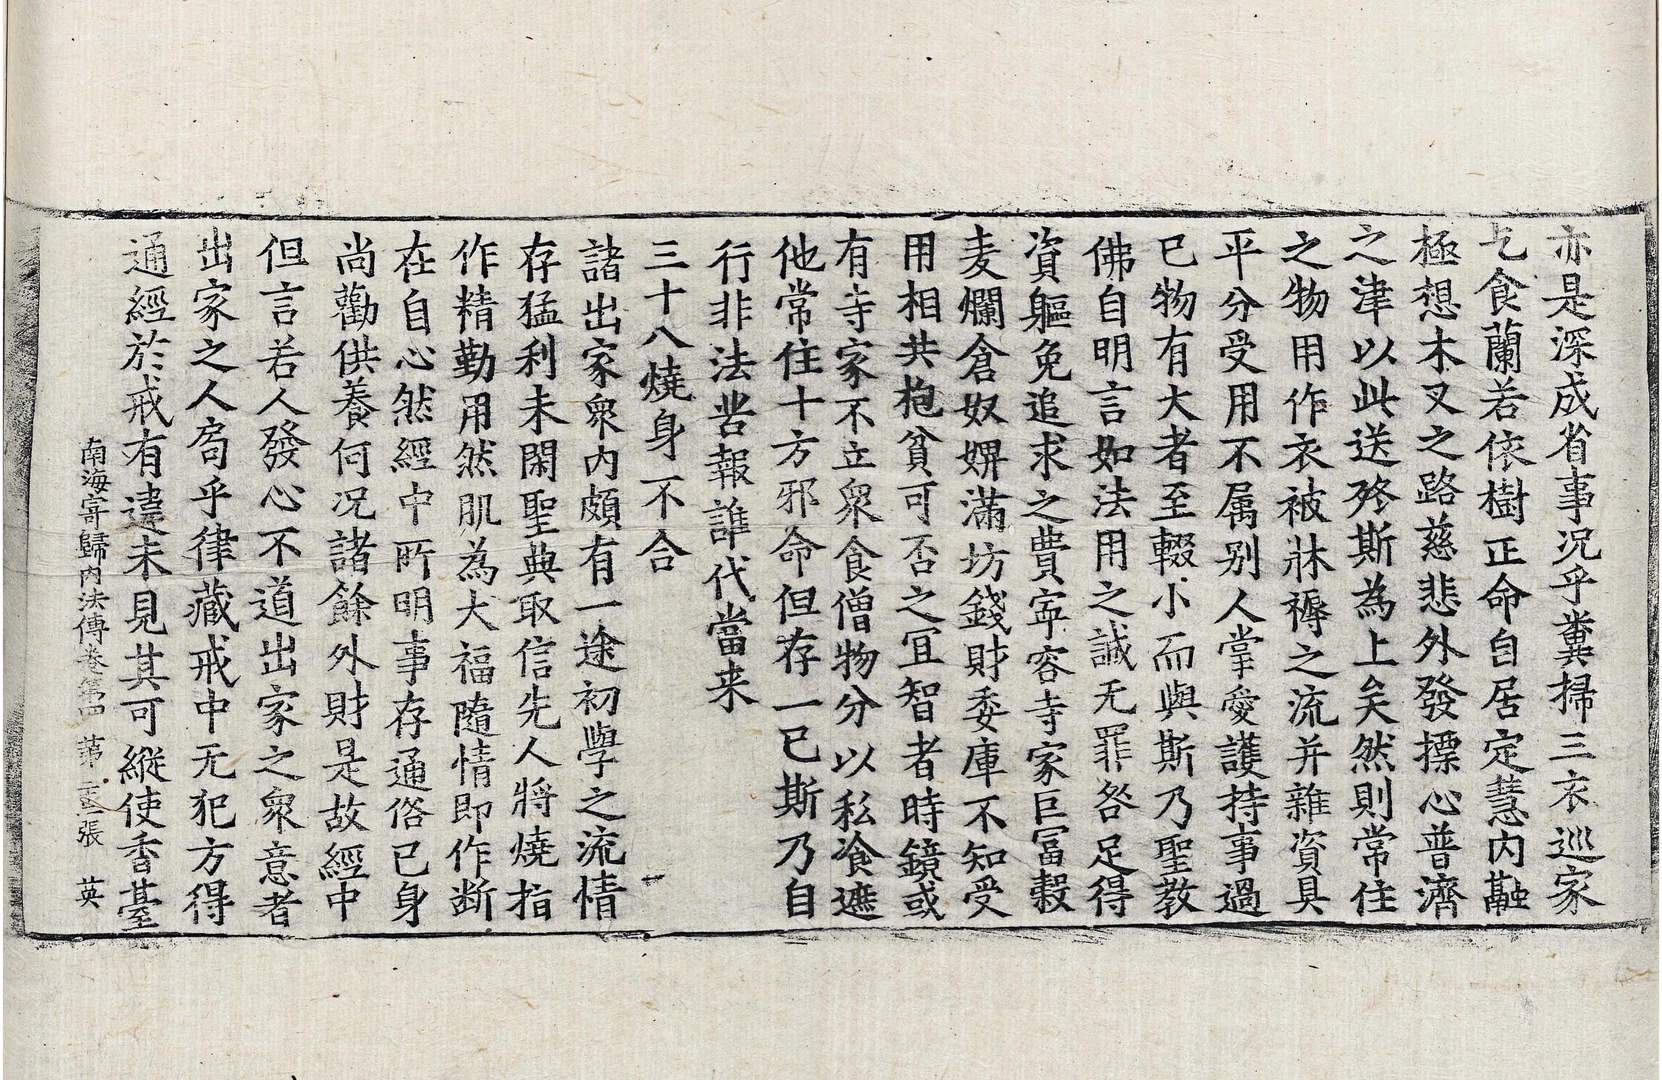 亦是深成省事况乎糞掃三衣巡家
乞食蘭若依樹正命自居定慧内融
極想木叉之路慈悲外發摽心普濟
之津以此送終斯為上矣然則常住
之物用作衣被牀褥之流并雜資具
平分受用不属別人掌愛護持事過
已物有大者至輟小而與斯乃聖教
佛自明言如法用之誠无罪咎足得
資軀免追求之費寜容寺家巨冨糓
麦爛倉奴婢滿坊錢財委庫不知受
用相共抱貧可否之冝智者時鏡或
有寺家不立衆食僧物分以私飡遮
他常住十方邪命但存一已斯乃自
行非法苦報誰代當来
三十八燒身不合
諸出家衆内頗有一途初學之流情
存猛利未閑聖典取信先人將燒指
作精勤用然肌為大福隨情即作断
在自心然經中所明事存通俗已身
尚勸供養何况諸餘外財是故經中
但言若人發心不道出家之衆意者
出家之人局乎律藏戒中无犯方得
通經於戒有違未見其可縱使香臺
南海寄歸内法傳卷第四 苐 張 英